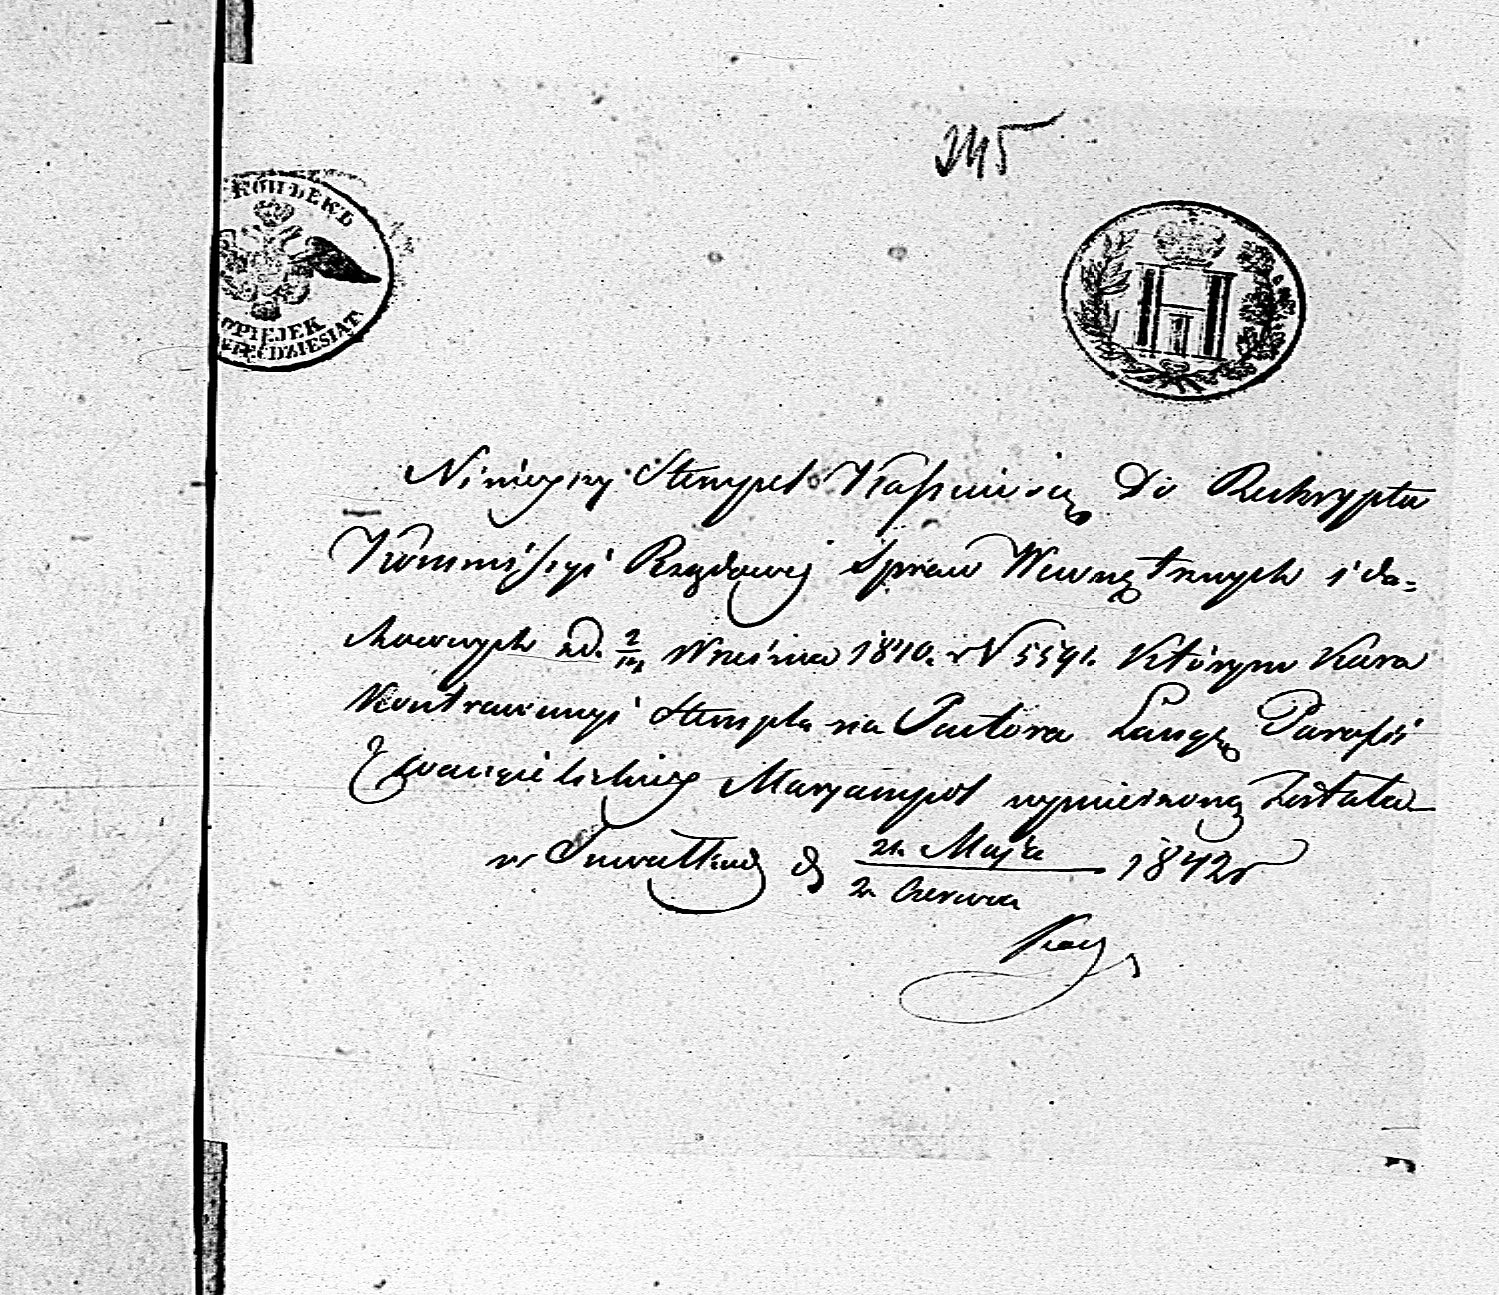 245
КОПѢЕКЪ
OPIEJEK
PIĘĆDZIESIĄT
Niniejszy Stempel Kassuie się Do Reskryptu
Kommissyi Rządowej Spraw Wewnętrznych i du-
chownych zd. 2/14 Września 1840. r N 5591. Którym Kara
Kontrawencyi stempla na Pastora Langę Parafii
Ewangielickiej Maryampol wymierzoną Została
w Suwałkach d 21 Maja 1842 r
2 Czerwca